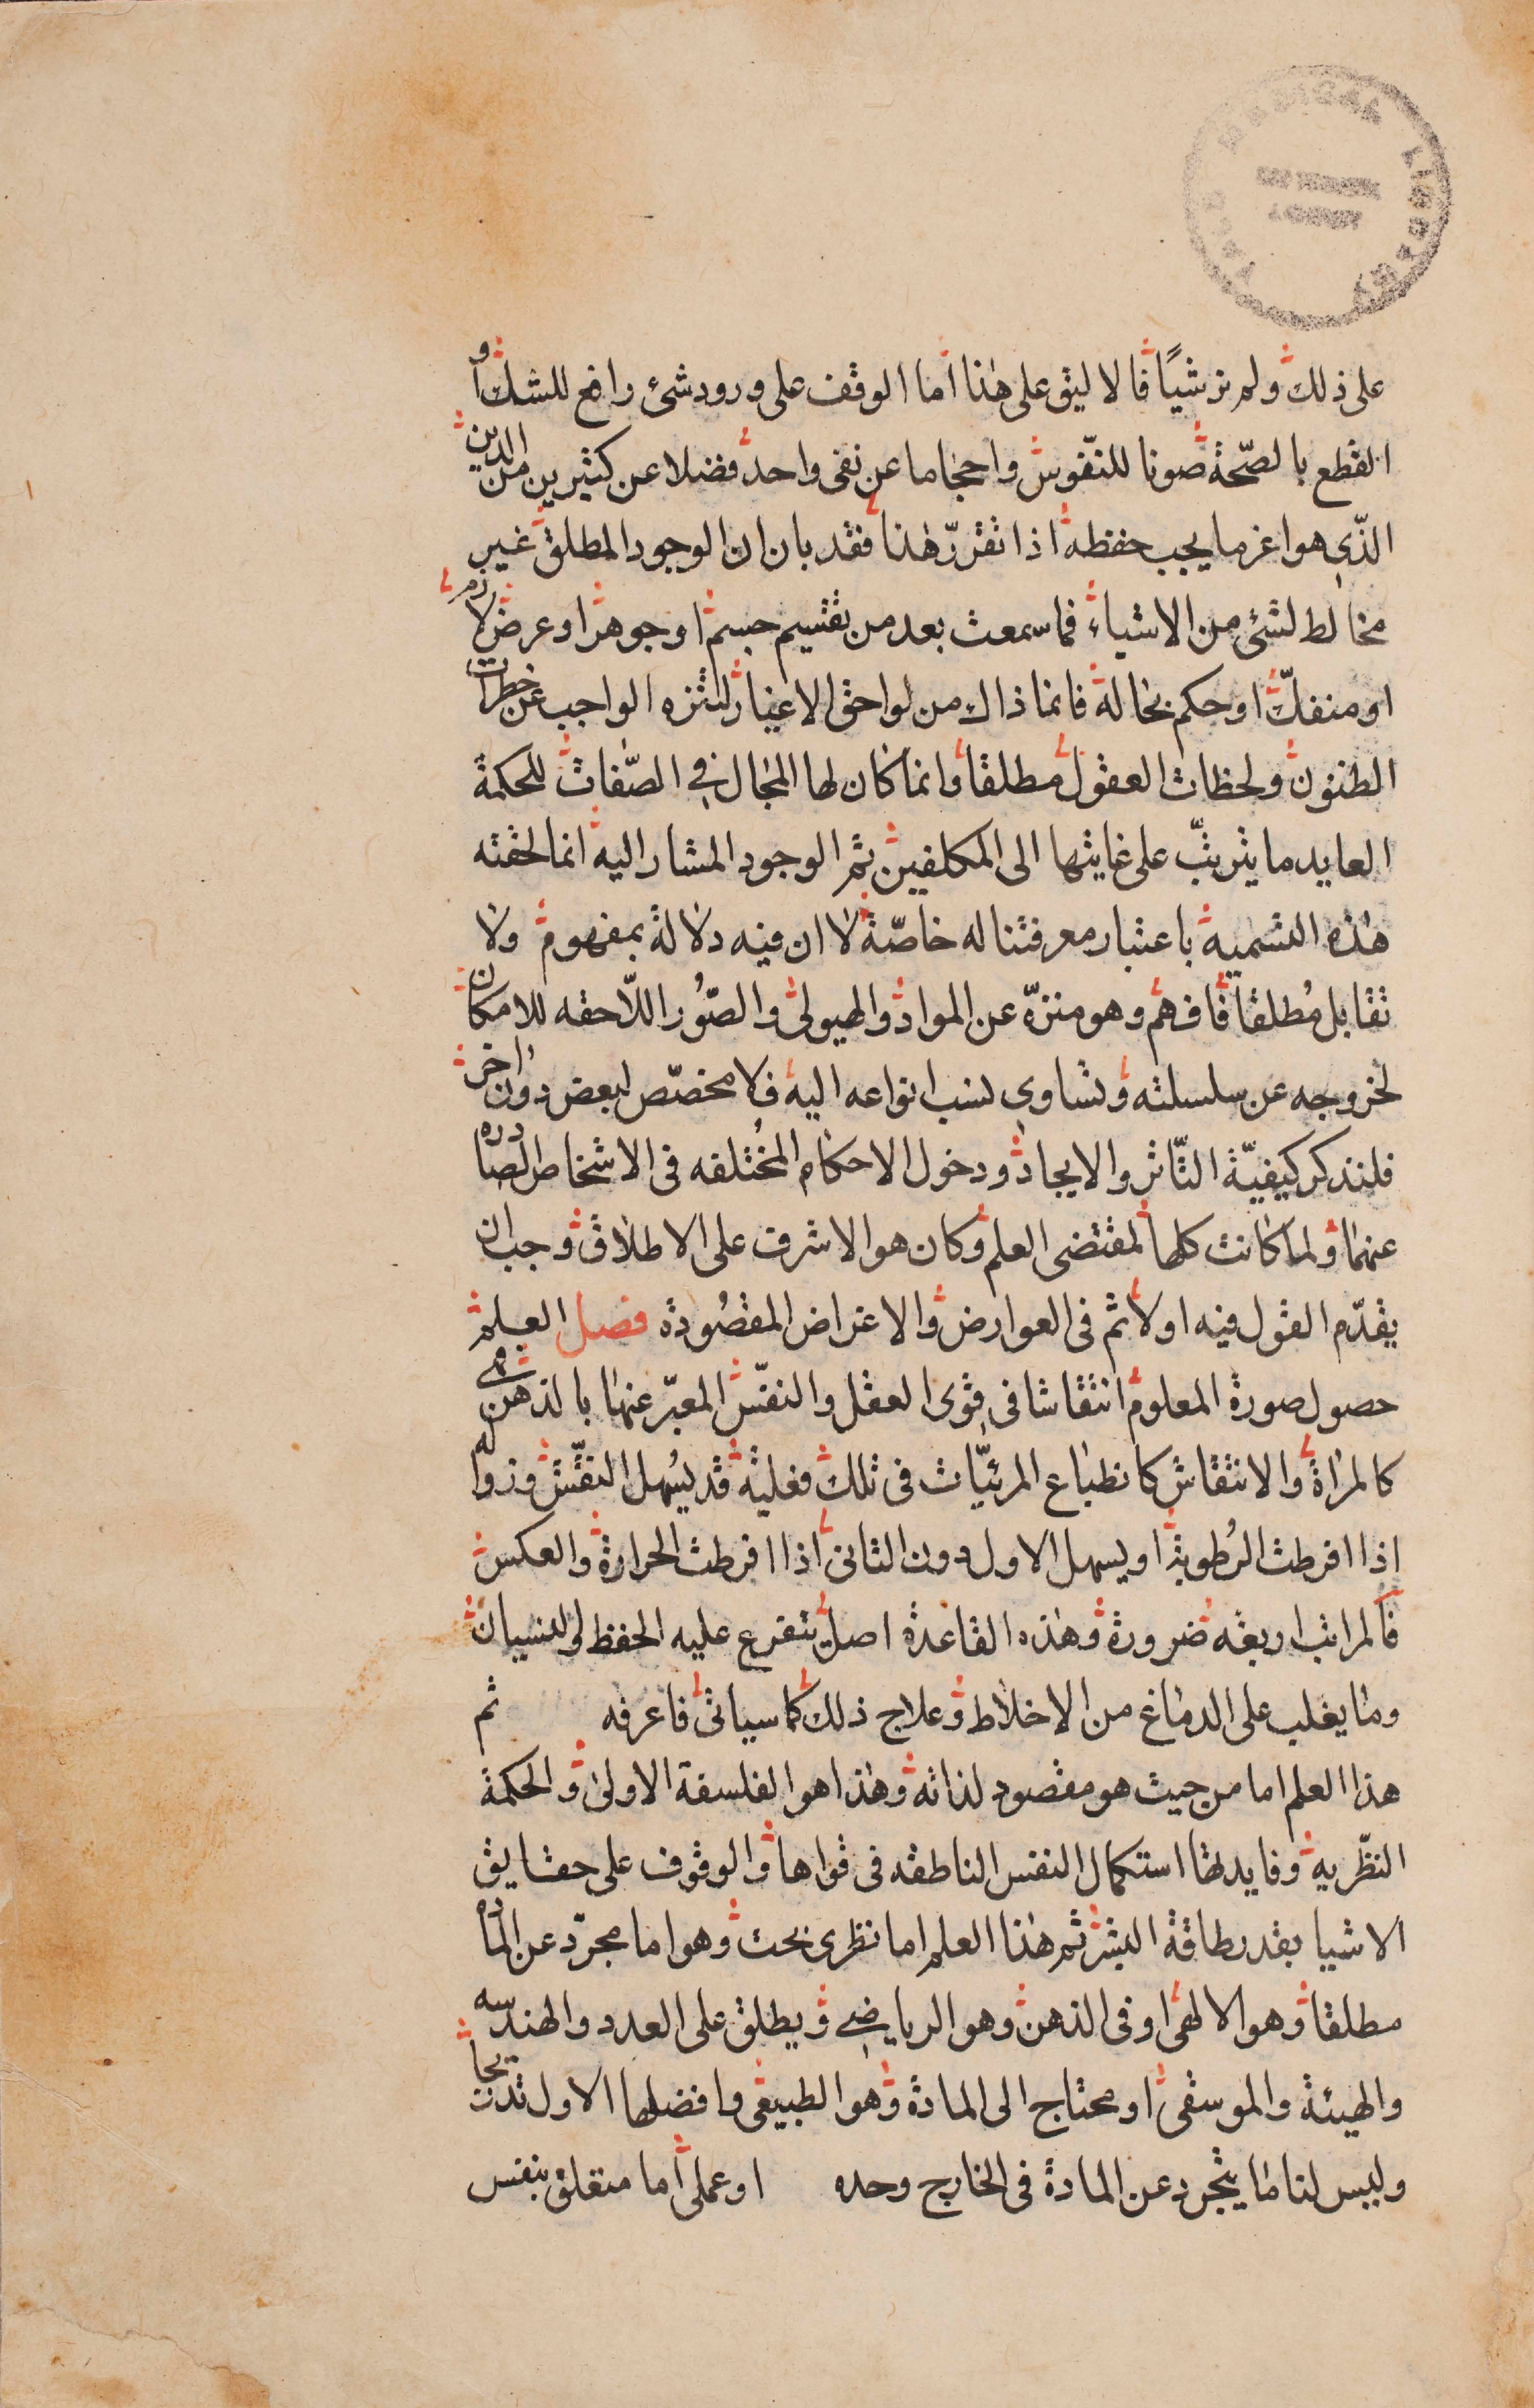 على ذلك ولم نر شيًا فالاليق على هذا اما الوقف على ورود شئ رافع للشك او
القطع بالصّحة صونا للنّفوس واحجاما عن نفى واحد فضلا عن كثيرين من الدين
الذّي هو اعز ما يجب حفظه اذا تقرّر هذا فقد بان ان الوجود المطلق غير
مخالط لشئ من الاشياء فما سمعت بعد من تقسيم جسم او جوهر او عرض لازم
او منفكّ او حكم بحالة فانما ذاك من لواحق الاعيار لتنزه الواجب عن خطرات
الظنون ولحظات العقول مطلقا وانما كان لها المجال في الصّفات للحكمة
العايد ما يترتّب على غايتها الى المكلفين ثم الوجود المشار اليه انما لحقته
هذه التسمية باعتبار معرفتنا له خاصّة لا ان فيه دلالة بمفهوم ولا
تقابل مُطلقا فافهم وهو منزّه عن المواد والهيولى والصّوُر اللّاحقه للامكان
لخروجه عن سلسلته وتساوى نسب انواعه اليه فلا مخصّص لبعض دون اخر
فلنذكر كيفيّة التّاثر والايجاد ودخول الاحكام المخُتلفه فى الاشخاص الصادره
عنهما ولما كانت كلها لمقتضى العلم وكان هو الاشرف على الاطلاق وجب ان
يقدّم القول فيه اولا ثم فى العوارض والاغراض المقصُودة فصل العلم
حصول صورة المعلوم انتقاشا فى قوى العقل والنفّس المعبّر عنها بالذهن فهى
كالمراة والانتقاش كانطباع المرئيّات فى تلك فعليه قد يسُهل النقّش وزواله
اذا افرطت الرُطوبة او يسهل الاول دون الثانى اذا افرطت الحرارة والعكس
فالمراتب اربعه ضرورة وهذه القاعدة اصل يتفرع عليه الحفظ والنسيان
وما يغلب على الدماغ من الاخلاط وعلاج ذلك كما سياتى فاعرفه ثم
هذا العلم اما من حيث هو مقصود لذاته وهذا هو الفلسفة الاولى والحكمة
النظّريه وفايدتها استكمال النفس الناطقه فى قواها والوقوف على حقايق
الاشيا بقدر طاقة البشر ثم هذا العلم اما نظرى بحت وهو اما مجرّد عن المادة
مطلقا وهو الالهى او فى الذهن وهو الرياضي ويطلق على العدد والهندسه
والهيئة والموسقى او محتاج الى المادة وهو الطبيعى وافضلها الاول تدريجا
وليس لنا ما يتجرد عن المادة فى الخارج وحده او عملى اما متعلق بنفس